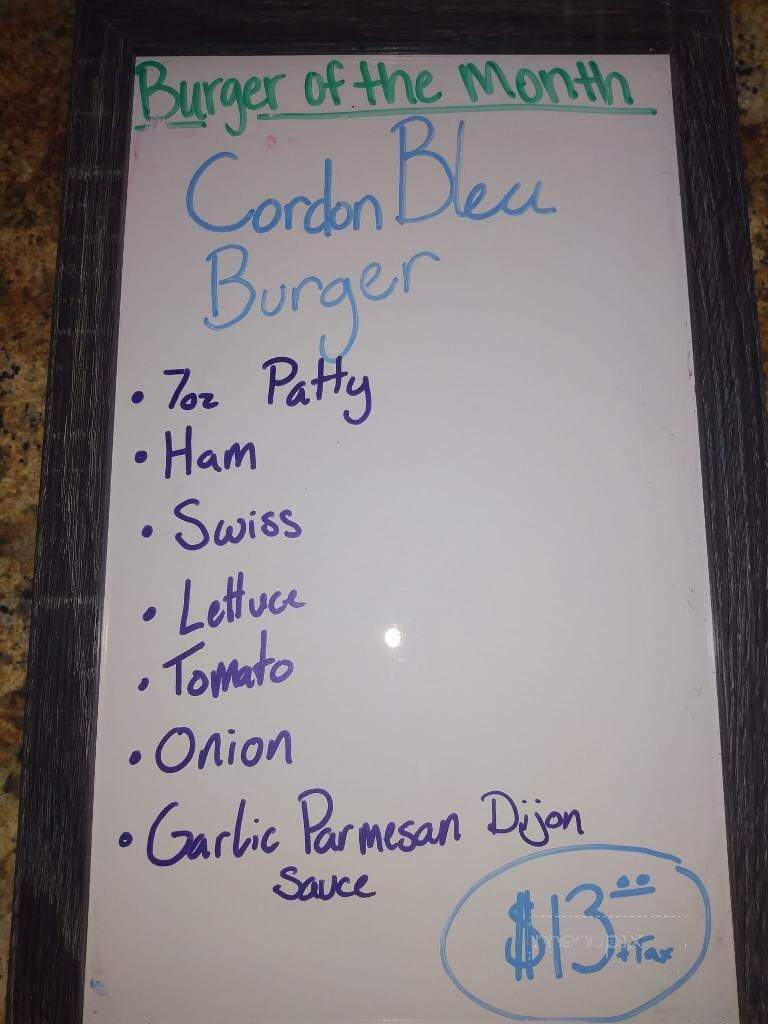 Burger of the Month
Cordon Bleu
Burger
• 7oz Patty
• Ham
• Swiss
• Lettuce
• Tomato
• Onion
• Garlic Parmesan Dijon
Sauce
$13.00
+Tax
menupix